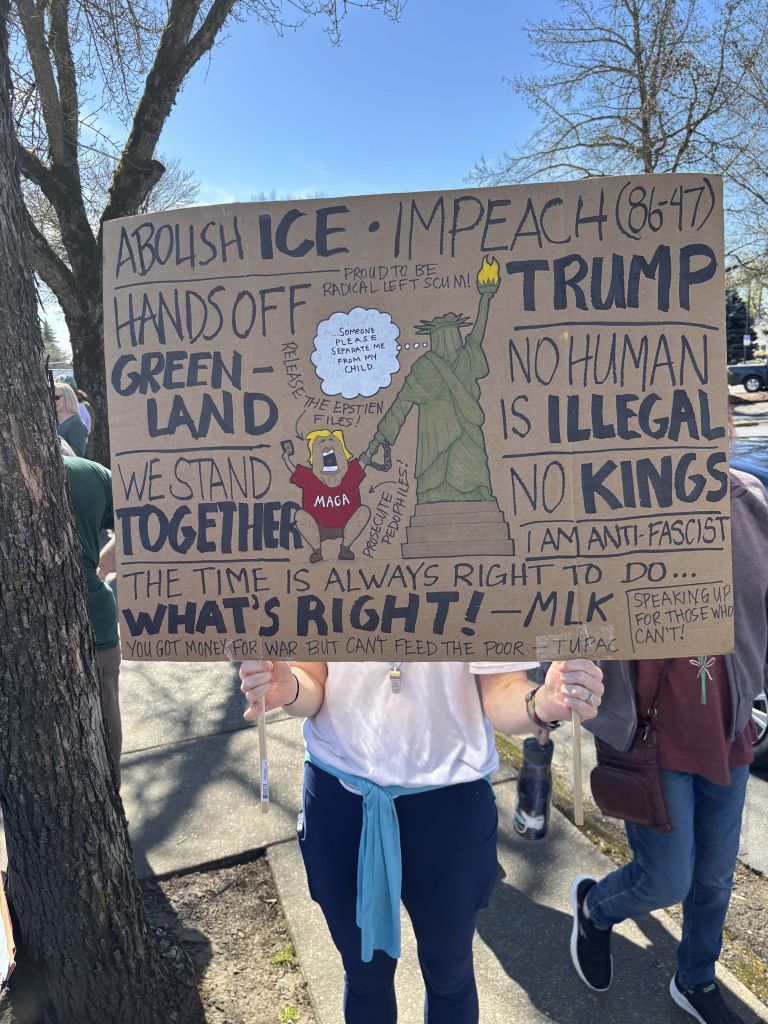 ABOLISH ICE • IMPEACH (86-47)
TRUMP
PROUD TO BE
RADICAL LEFT SCUM!
HANDS OFF
GREEN-
LAND
WE STAND
TOGETHER
...SOMEONE
PLEASE
SEPARATE ME
FROM MY
CHILD.
RELEASE
THE EPSTIEN
FILES!
MAGA
PROSECUTE
PEDOPHILES!
NO HUMAN
IS ILLEGAL
NO KINGS
I AM ANTI-FASCIST
THE TIME IS ALWAYS RIGHT TO DO...
WHAT'S RIGHT! -MLK
SPEAKING UP
FOR THOSE WHO
CAN'T!
YOU GOT MONEY FOR WAR BUT CAN'T FEED THE POOR - TUPAC